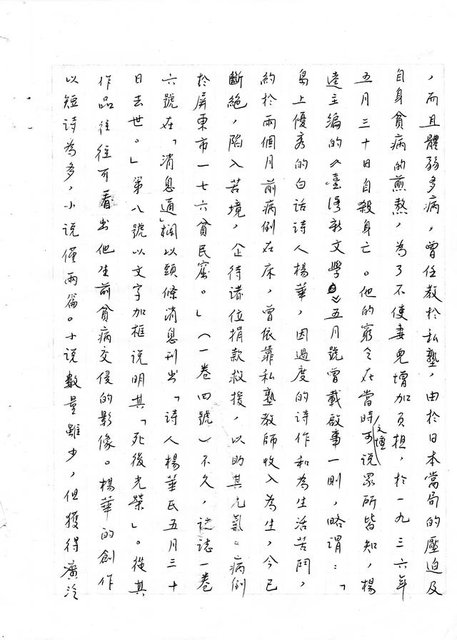 ，而且體弱多病，曾任教於私塾，由於日本當局的壓迫及
自身貧病的煎熬，為了不使妻兒增加負担，於一九三六年
五月三十日自殺身亡。他的窮令在當時文壇可說眾所皆知，楊
逵主編的《臺灣新文學》五月號曾載啟事一則，略謂：「
島上優秀的白話詩人楊華，因過度的詩作和為生活苦鬥，
約於兩個月前病倒在床，曾依靠私塾教師收入為生，今已
斷絕，陷入苦境，企待諸位捐款救援，以助其元氣。病倒
於屏東市一七六貧民窟。」（一卷四號）不久，該誌一卷
六號在「消息通」欄以頭條消息刊出「詩人楊華氏五月三十
日去世。」第八號以文字加框說明其「死後光榮」。從其
作品往往可看出他生前貧病交侵的影像。楊華的創作
以短詩為多，小說僅兩篇。小說數量雖少，但獲得廣泛